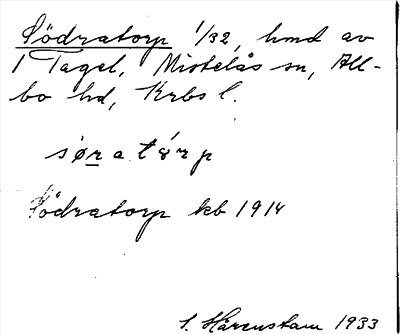 Södratorp 1/32, hmd av
1 Tagel, Mistelås sn, All-
bo hd, Krbs l.
sø̱ratórp
Södratorp kb 1914
S. Härenstam 1933